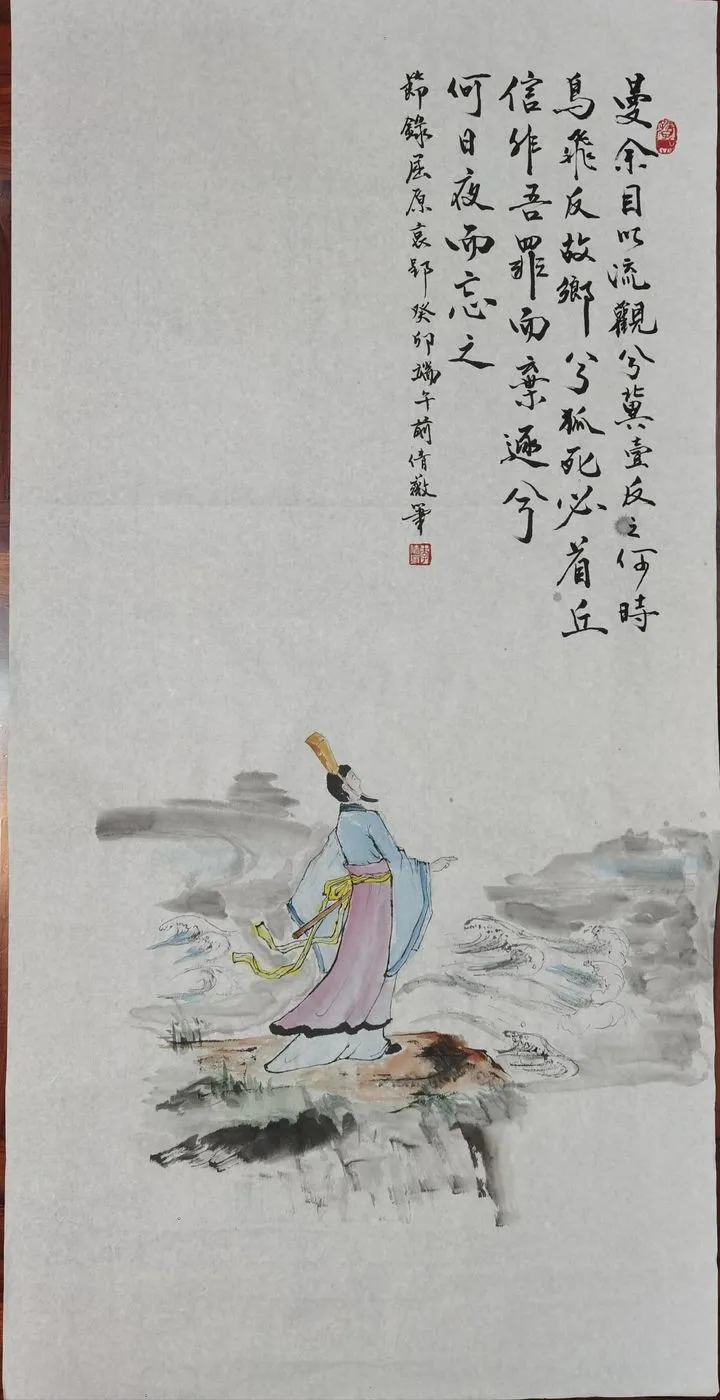 曼余目以流觀兮冀壹反之何時
鳥飛反故鄉兮狐死必首丘
信非吾罪而棄逐兮
何日夜而忘之
節錄屈原哀郢癸卯端午前倩薇筆